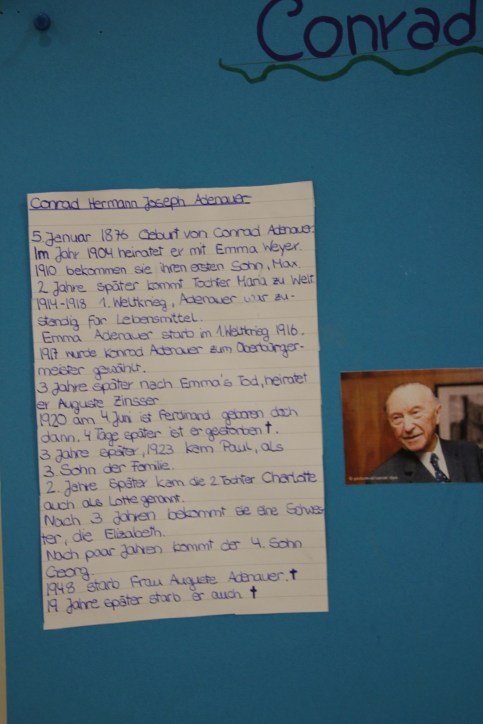 Conrad
Conrad Hermann Joseph Adenauer
5 Januar 1876 Geburt von Conrad Adenauer.
Im Jahr 1904 heiratet er mit Emma Weyer.
1910 bekommen sie ihren ersten Sohn, Max.
2 Jahre später kommt Tochter Maria zu Welt.
1914-1918 1. Weltkrieg, Adenauer war zu-
ständig für Lebensmittel.
Emma Adenauer starb im 1. Weltkrieg 1916.
1917 wurde Konrad Adenauer zum Oberbürger-
meister gewählt.
3 Jahre später nach Emma's Tod, heiratet
er Auguste Zinsser
1920 am 4. Juni ist Ferdinand geboren doch
dann. 4 Tage später ist er gestorben †.
3 Jahre später, 1923 kam Paul, als
3. Sohn der Familie.
2. Jahre später kam die 2 Tochter Charlotte
auch als Lotte genannt.
Nach 3 Jahren bekommt sie eine Schwes-
ter, die Elizabeth.
Nach paar Jahren kommt der 4. Sohn
Georg.
1948 starb Frau Auguste Adenauer. †
19 Jahre später starb er auch †